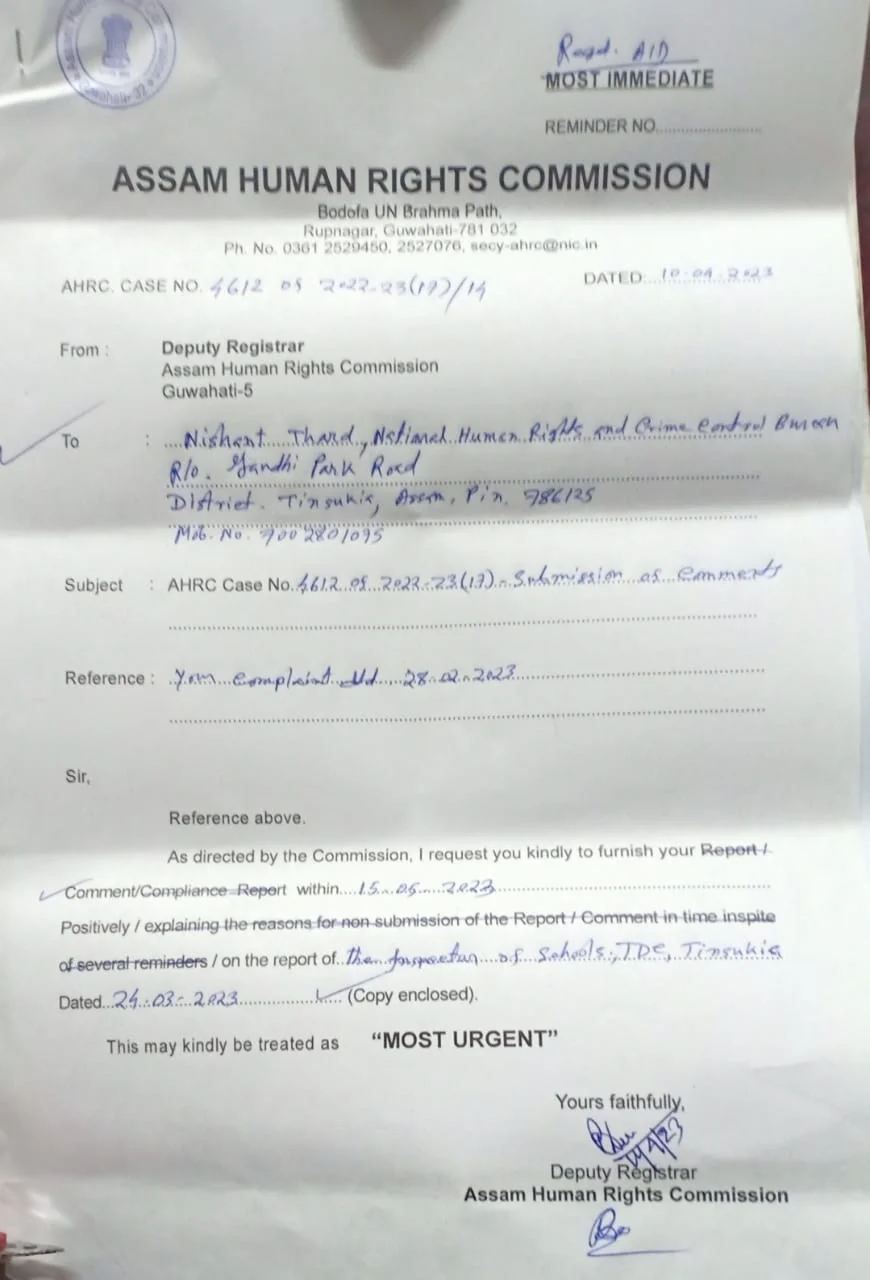 Regd. A/D
"MOST IMMEDIATE
REMINDER NO..........................
ASSAM HUMAN RIGHTS COMMISSION
Bodofa UN Brahma Path,
Rupnagar, Guwahati-781 032
Ph. No. 0361 2529450, 2527076, secy-ahrc@nic.in
AHRC. CASE NO. 4612 of 2022-23(17)/14
DATED:...10-04-2023
From : Deputy Registrar
Assam Human Rights Commission
Guwahati-5
To : ....Nishant Thard, National Human Rights and Crime Control Bureau
R/o. Gandhi Park Road
District. Tinsukia, Assam, Pin. 786125
Mob. No. 7002801095
Subject : AHRC Case No. 4612 of 2022-23(17) - Submission of Comments
Reference : Your Complaint dtd. 28-02-2023
Sir,
Reference above.
As directed by the Commission, I request you kindly to furnish your Report /
Comment/Compliance Report within....15-05-2023
Positively / explaining the reasons for non submission of the Report / Comment in time inspite
of several reminders / on the report of..the Inspector of Schools, TDC, Tinsukia
Dated...24-03-2023.................... (Copy enclosed).
This may kindly be treated as "MOST URGENT"
Yours faithfully,
Deputy Registrar
Assam Human Rights Commission